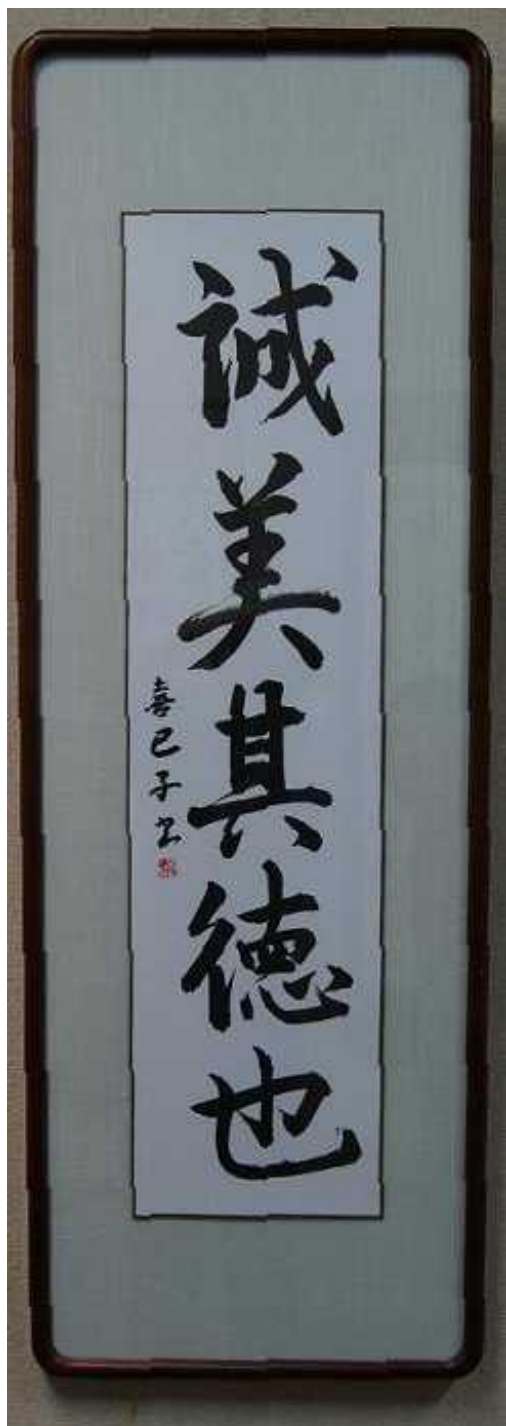 誠美其徳也
喜巳子书